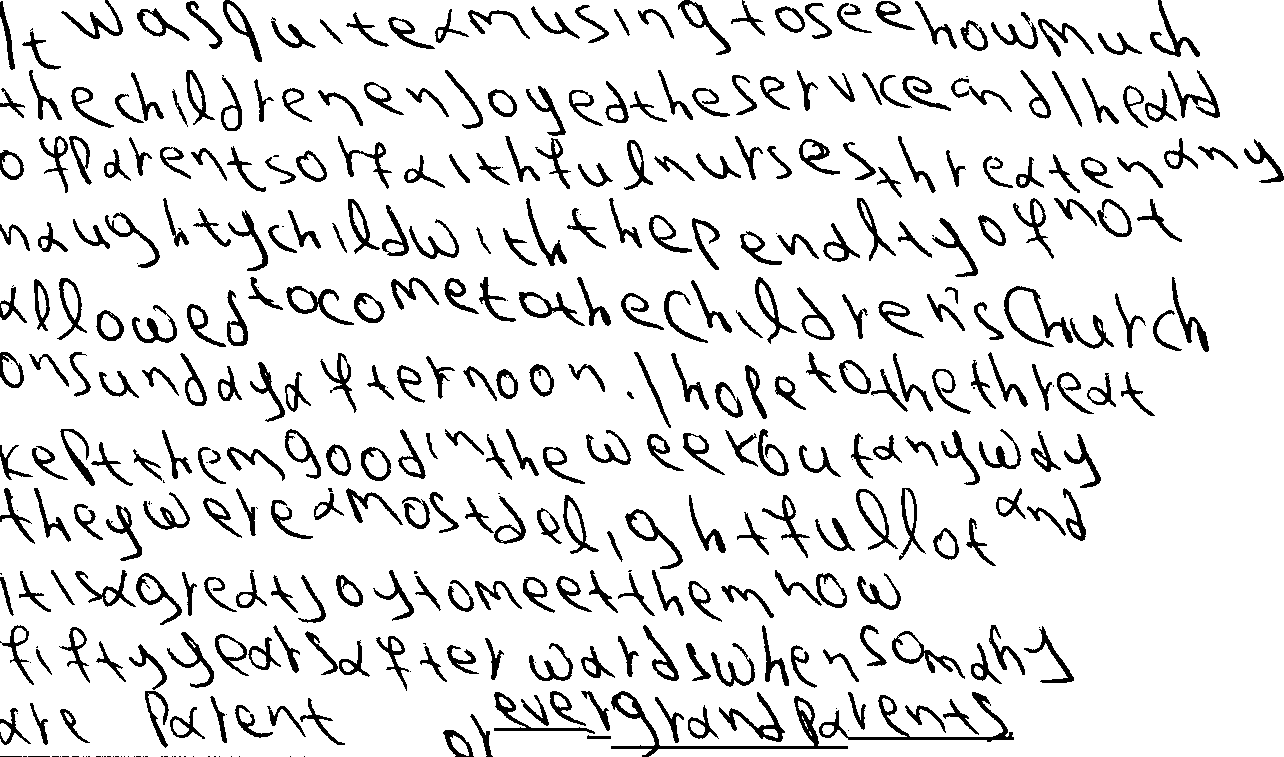 It was quite amusing to see how much
the children enjoyed the service and I heard
of parents or faithful nurses, threaten any
naughty child with the penalty of not
allowed to come to the Children's Church
on Sunday afternoon. I hope to the threat
kept them good in the week but anyway
they were a most delightful lot and
it is a great joy to meet them now
fifty years afterwards when so many
are parent or ever grandparents.